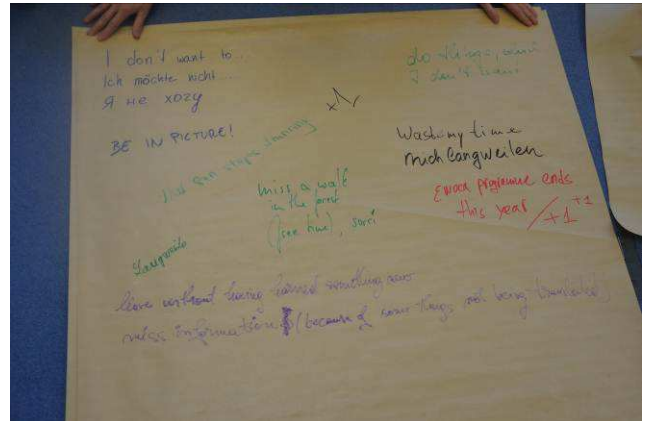 I don't want to...
Ich möchte nicht...
Я не хочу
BE IN PICTURE!
do things,
I don't want
Wasting my time
mich langweilen
that sun stops shining
miss a walk
in the forest
(free time), sorri
programme ends
this year /+1 +1
Langweile
leave without having learned something new
miss information (because of some things not being translated)